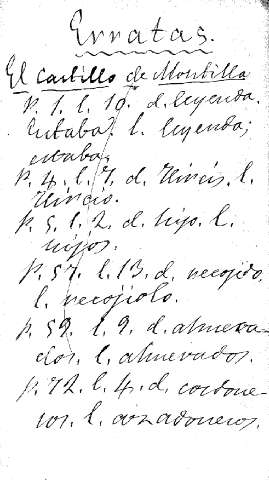 Erratas.
El Castillo de Montilla
p. 1. l. 10. d. leyenda.
Estaba. l. leyenda;
estaba.
p. 4. l. 7. d. l.
p. 5. l. 2. d. hijo. l.
hijos.
p. 57. l. 13. d. recojido
l. recojiolo.
p. 59. l. 9. d. almena-
dos. l. almenados.
p. 72. l. 4. d. cordone-
ros. l. azadoneros.